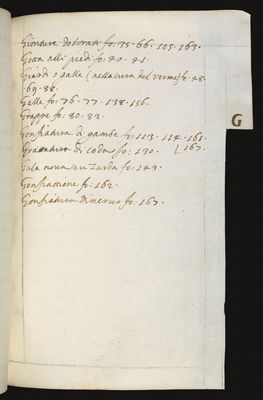 Gionture dolorati fo: 35. 66. 105. 163.
Gotta alli piedi fo: 40. 41.
Giardi o galle (nella cura del verme) fo: 48.
69. 88.
Galle fo: 76. 77. 138. 156.
Grappe fo: 80. 82.
Gonfiatura di gambe fo: 113. 114. 161.
167.
Grattatura di coda fo: 130.
Gala noua seu Zarda fo: 143.
Gonfiattione fo: 162.
Gonfiatura di neruo fo: 167.
G